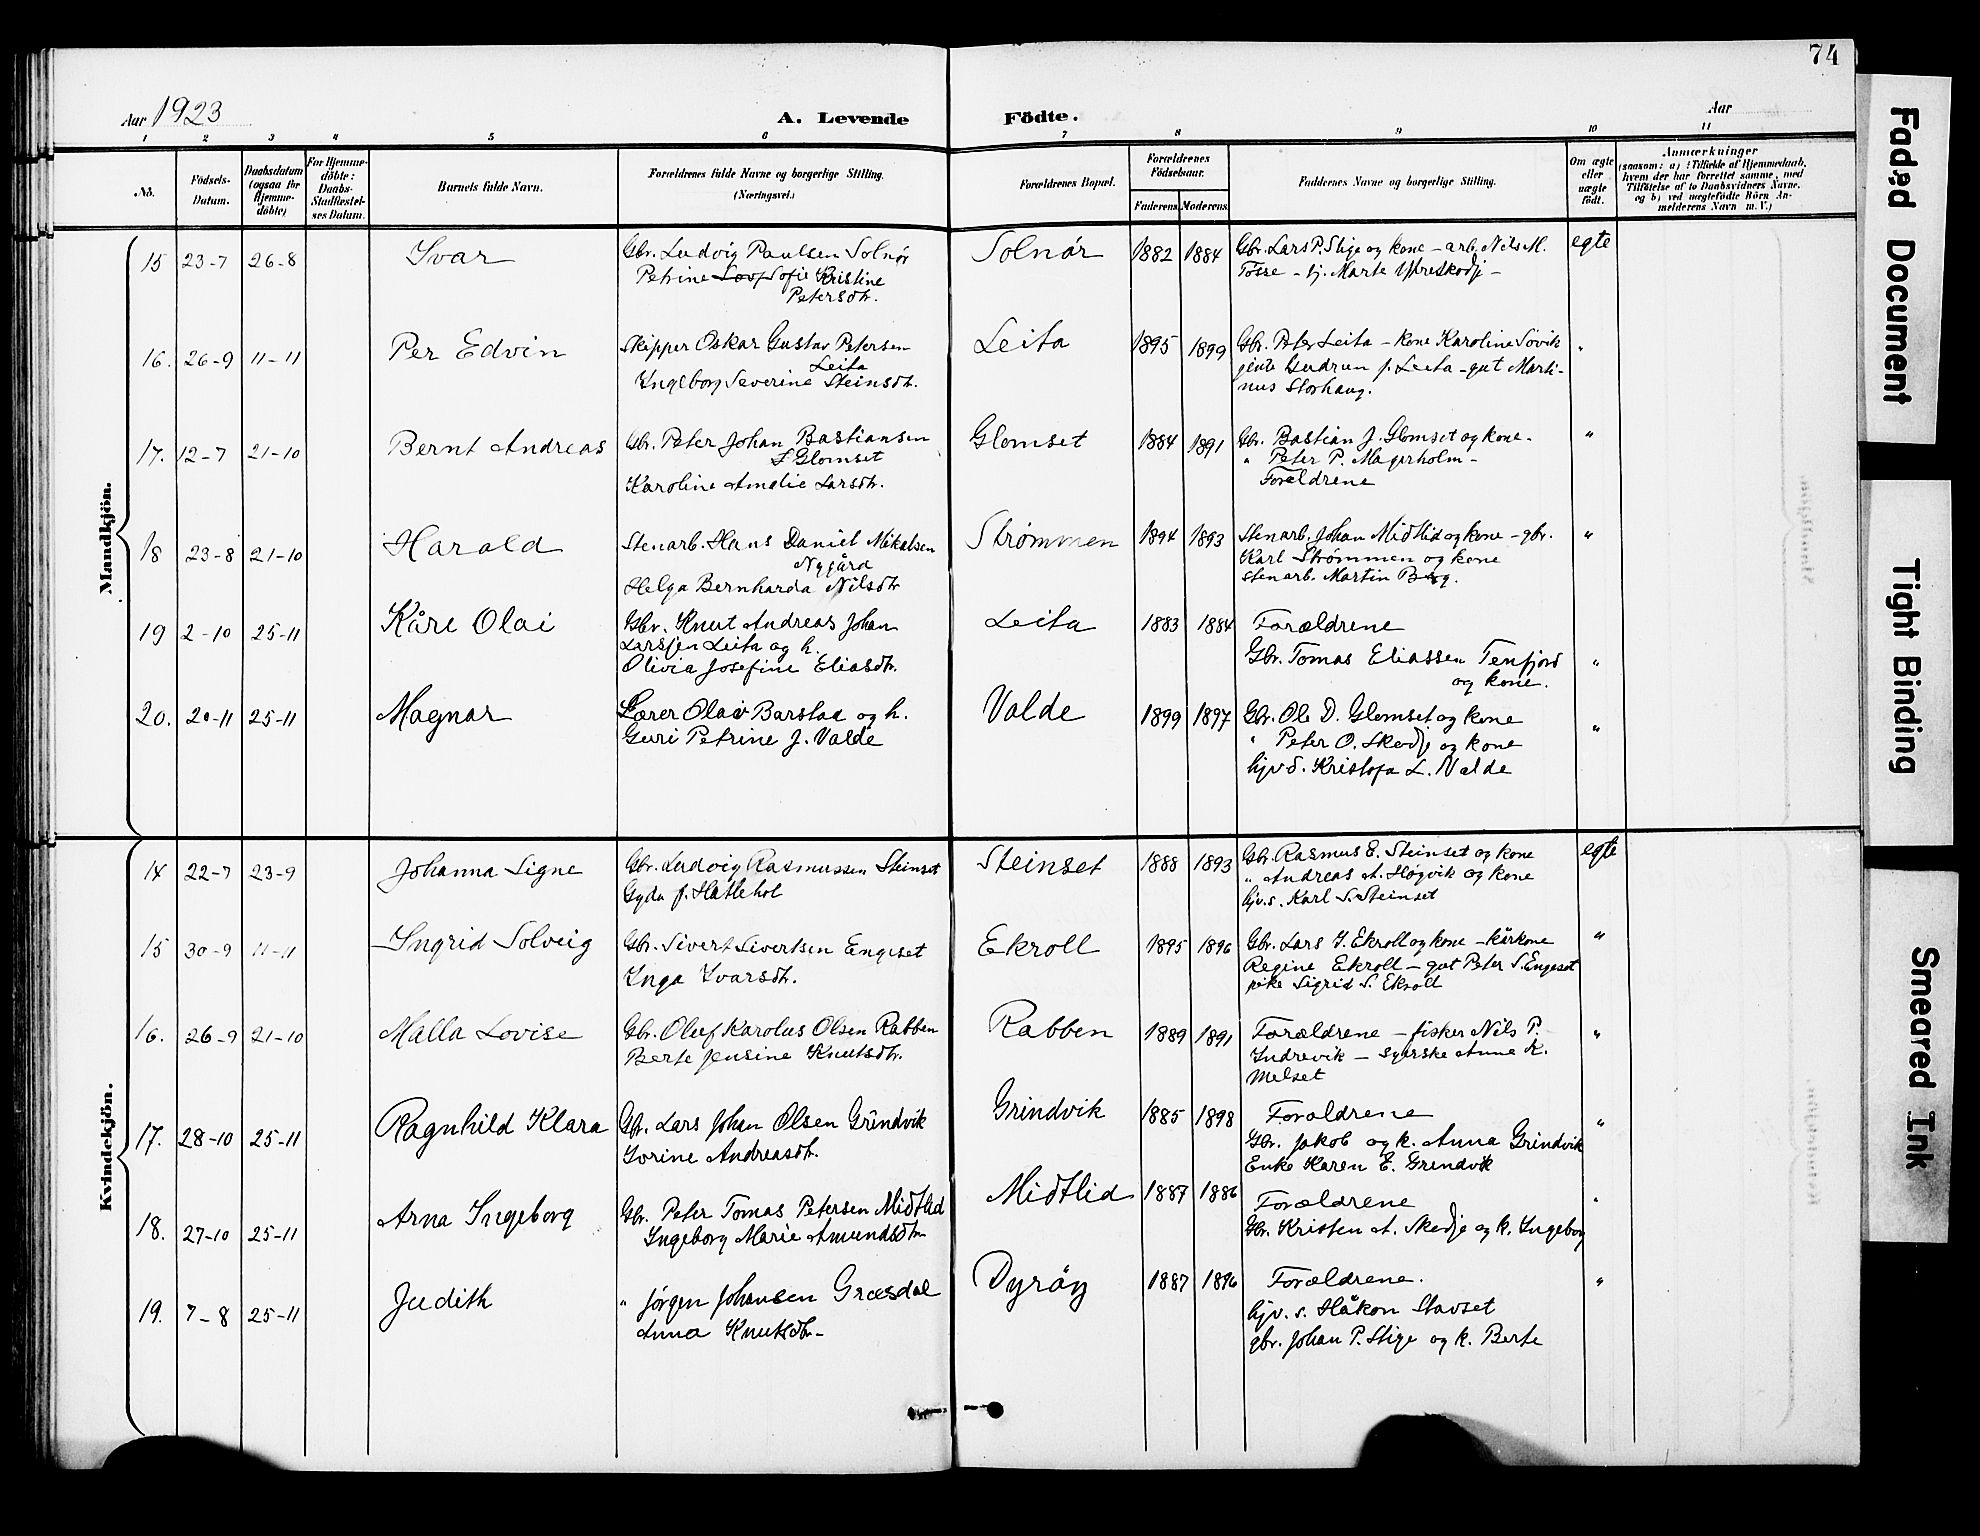 74
Aar 1923 A. Levende Födte. Aar
1 2 3 4 5 6 7 8 9 10 11
No. Födsels-Datum. Daabsdatum (ogsaa for Hjemme-döbte) For Hjemme-döbte: Daabs-Stadfæstel-ses Datum. Barnets fulde Navn. Forældrenes fulde Navne og borgerlige Stilling. (Næringsvei.) Forældrenes Bopæl. Forældrenes Födselsaar. Faderens. Moderens. Faddernes Navne og borgerlige Stilling. Om ægte eller uægte födt. Anmærkninger (saasom: a) i Tilfælde af Hjemmedaab, hvem der har forrettet samme, med Tilföielse af to Daabsvidners Navne, og b) ved uægtefödte Börn An-melderens Navn m. V.)
Mandkjön.
15 23-7 26-8 Ivar Gbr. Ludvig Paulsen Solnör Solnör 1882 1884 Gbr. Lars P. Stige og kone - arb. Nils M. egte
Petrine Sofie Kristine Tosse - tj. Marte Ytreskodje -
Petersdtr.
16. 26-9 11-11 Per Edvin Skipper Oskar Gustav Petersen Leita 1895 1899 Gbr. Peter Leita - kone Karoline Søvik "
Leita jente Gudrun p. Leita - gut Marti-
Ingeborg Severine Steinsdtr. nus Storhaug.
17. 12-7 21-10 Bernt Andreas Gbr. Peter Johan Bastiansen Glomset 1884 1891 Gbr. Bastian J. Glomset og kone - "
Glomset " Peter P. Magerholm -
Karoline Amalie Larsdtr. Forældrene
18 23-8 21-10 Harald Stenarb. Hans Daniel Mikalsen Strømmen 1894 1893 Stenarb. Johan Midtlid og kone - gbr. "
Nygård Karl Strømmen og kone
Helga Bernharda Nilsdtr stenarb. Martin Berg.
19 2-10 25-11 Kåre Olai Gbr. Knut Andreas Johan Leita 1883 1884 Forældrene
Larssen Leita og h. Gbr. Tomas Eliassen Tenfjord "
Olivia Josefine Eliasdtr. og kone.
20. 20-11 25-11 Magnar Lærer Olav Barstad og h. Valde 1899 1897 Gbr. Ole D. Glomset og kone
Guri Petrine J. Valde " Peter O. Skodje og kone "
hjv d. Kristofa L. Valde
Kvindekjön.
14 22-7 23-9 Johanna Signe Gbr. Ludvig Rasmussen Steinset Steinset 1888 1893 Gbr. Rasmus E. Steinset og kone egte
Gyda f. Hatlehol " Andreas A. Høgvik og kone
hjv. s. Karl S. Steinset
15 30-9 11-11 Ingrid Solveig Gbr. Sivert Sivertsen Engeset Ekroll 1895 1896 Gbr. Lars J. Ekroll og kone - kårkone "
Inga Ivarsdtr. Regine Ekroll - gut Peter S. Engeset
pike Sigrid S. Ekroll
16. 26-9 21-10 Malla Lovise Gbr. Oluf Karolus Olsen Rabben Rabben 1889 1891 Forældrene - fisker Nils P. "
Berte Jensine Knutsdtr. Indrevik - syerske Anne K.
Melset
17. 28-10 25-11 Ragnhild Klara Gbr. Lars Johan Olsen Grindvik Grindvik 1885 1898 Forældrene "
Jorine Andreasdtr. Gbr. Jakob og k. Anna Grindvik
Enke Karen E. Grindvik
18. 27-10 25-11 Arna Ingeborg Gbr. Peter Tomas Petersen Midtlid Midtlid 1887 1886 Forældrene "
Ingeborg Marie Amundsdtr Gbr. Kristen A. Skodje og k. Ingeborg
19. 7-8 25-11 Judith " Jørgen Johansen Græsdal Dyrøy 1887 1896 Forældrene. "
Anna Knutsdtr- hjv. s. Håkon Stavset
gbr. Johan P. Stige og k. Berte
Faded Document
Tight Binding
Smeared Ink